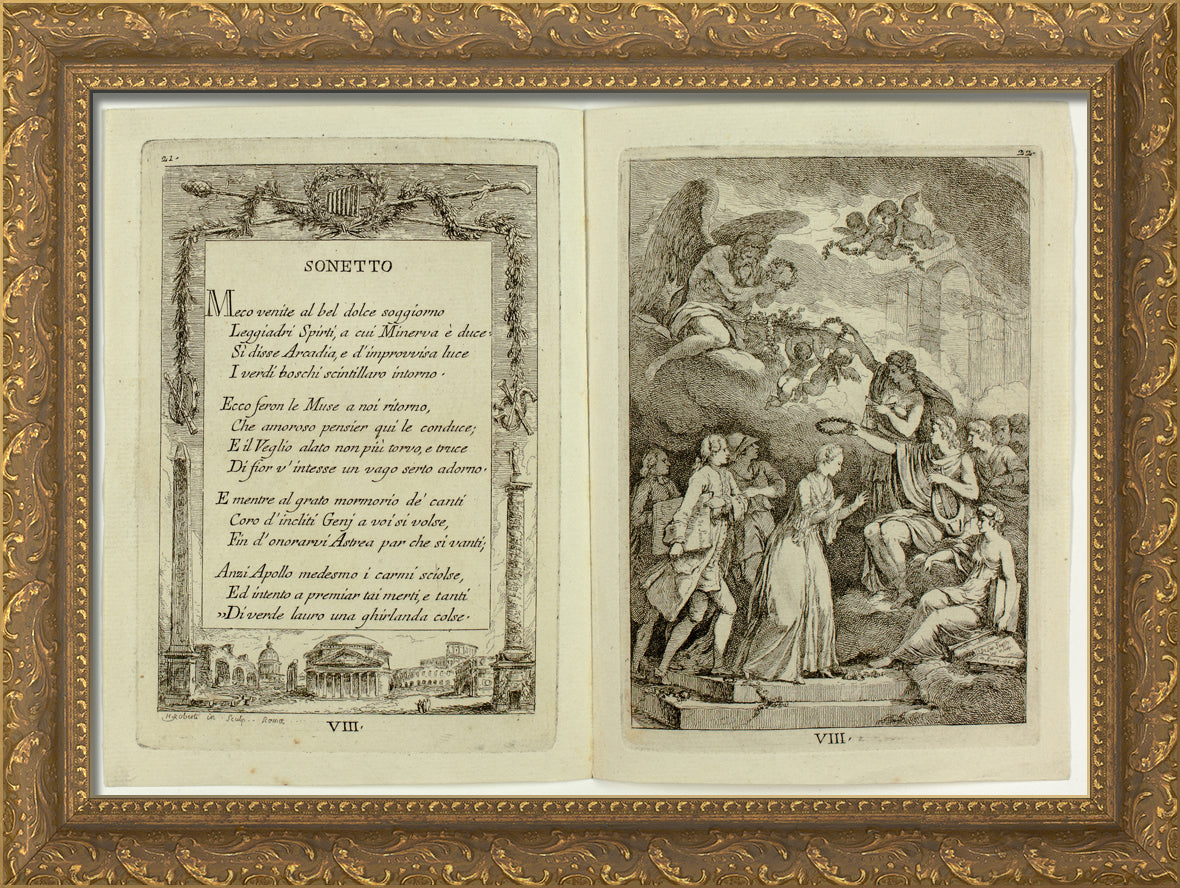 21.
SONETTO
Meco venite al bel dolce soggiorno
Leggiadri Spirti, a cui Minerva è duce.
Sì disse Arcadia, e d'improvvisa luce
I verdi boschi scintillaro intorno.
Ecco feron le Muse a noi ritorno,
Che amoroso pensier qui le conduce;
E il Veglio alato non più torvo, e truce
Di fior v'intesse un vago serto adorno.
E mentre al grato mormorio de' canti
Coro d'incliti Genj a voi si volse,
Fin d'onorarvi Astrea par che si vanti;
Anzi Apollo medesmo i carmi sciolse,
Ed intento a premiar tai merti, e tanti
»Di verde lauro una ghirlanda colse.
H. Roberti in Sculp. Romæ
VIII.
22.
VIII.